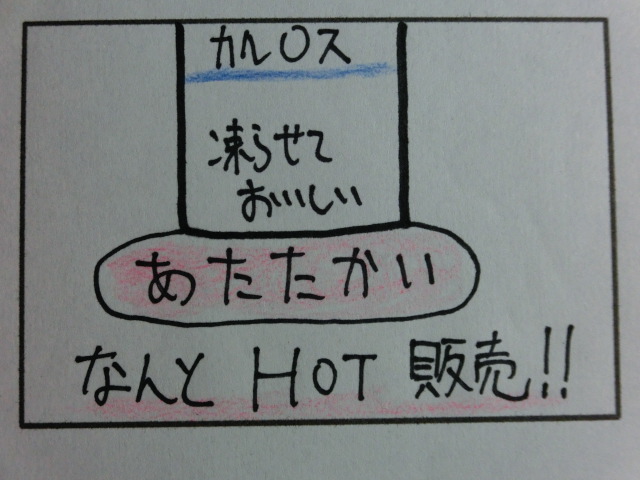 カルOス
凍らせて
おいしい
あたたかい
なんと HOT 販売!!